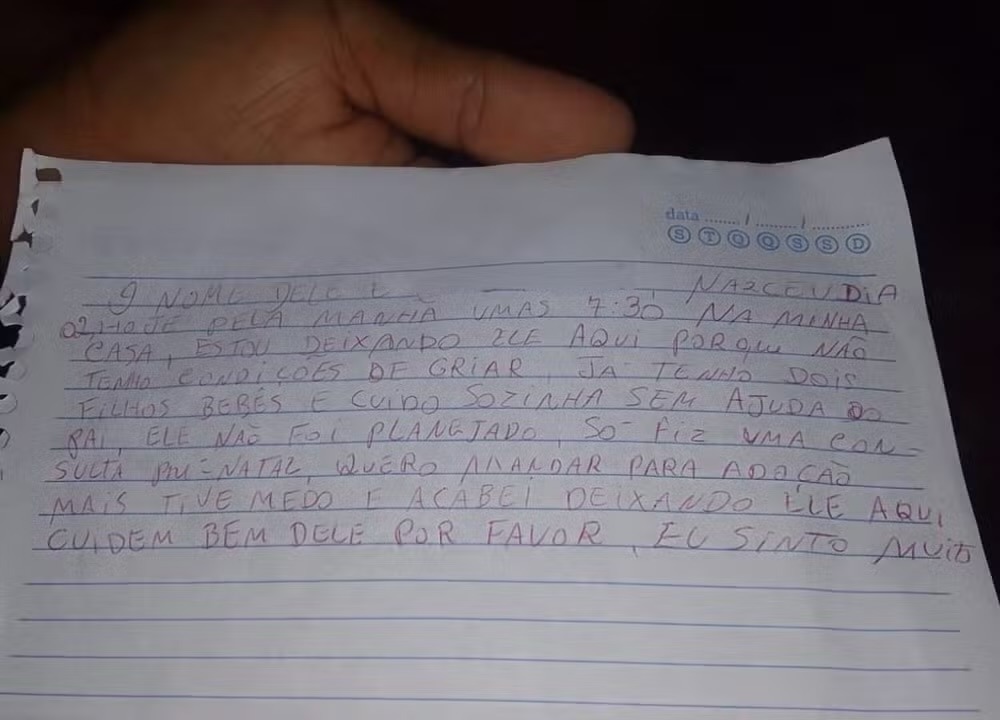 data ....... / ........... / ...............
S T Q Q S S D
O NOME DELE É NAZCEU DIA
02, HOJE PELA MANHÃ UMAS 7:30 NA MINHA
CASA, ESTOU DEIXANDO ELE AQUI PORQUE NÃO
TENHO CONDIÇÕES DE CRIAR, JÁ TENHO DOIS
FILHOS BEBÊS E CUIDO SOZINHA SEM AJUDA DO
PAI, ELE NÃO FOI PLANEJADO, SÓ FIZ UMA CON-
SULTA PRÉ-NATAL, QUERO MANDAR PARA ADOÇÃO
MAIS TIVE MEDO E ACABEI DEIXANDO ELE AQUI,
CUIDEM BEM DELE POR FAVOR, EU SINTO MUITO